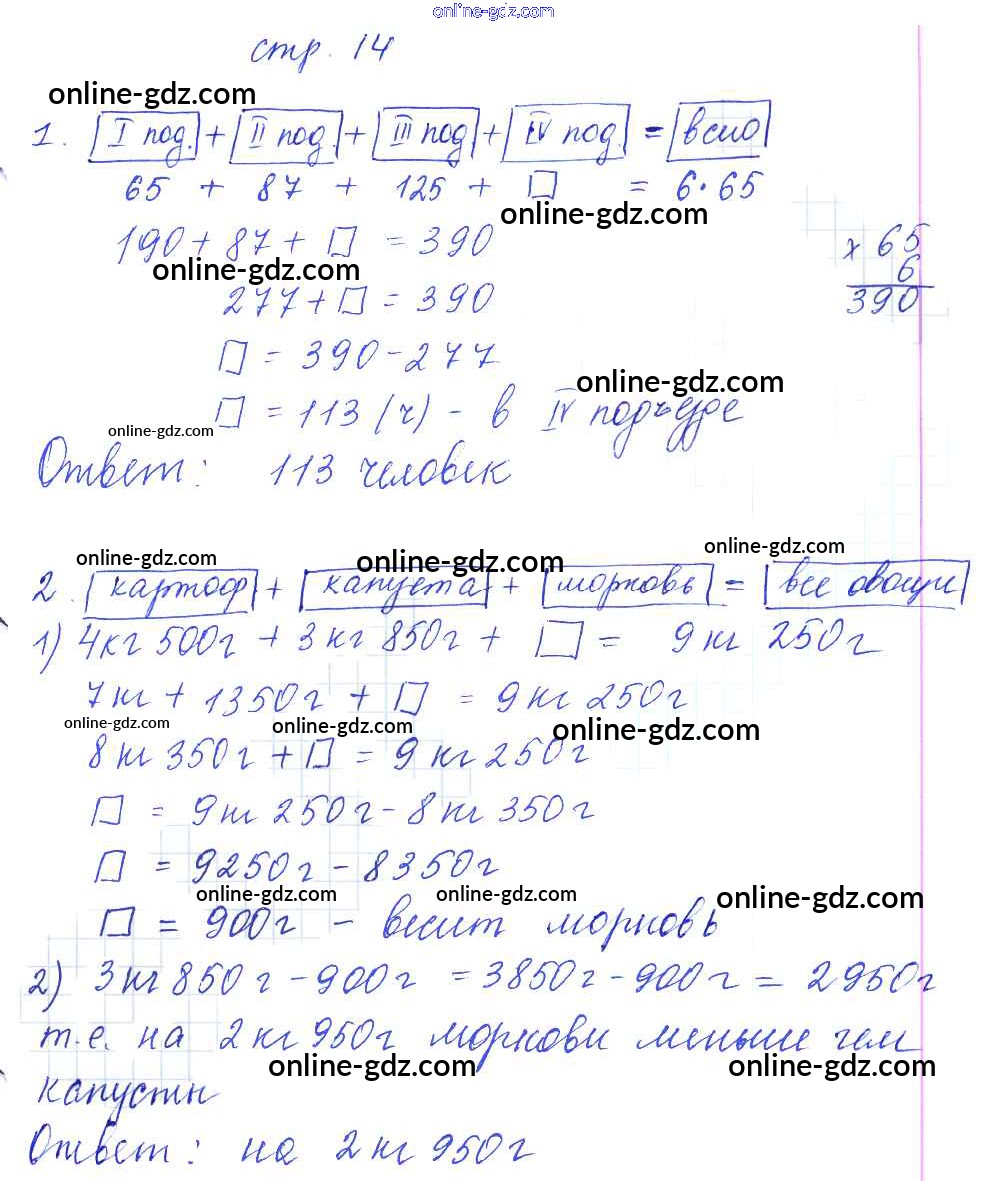 online-gdz.com
стр. 14
online-gdz.com
1. I под. + II под. + III под + IV под. = всио
65 + 87 + 125 + □ = 6·65
online-gdz.com
190 + 87 + □ = 390
× 65
6
390
online-gdz.com
277 + □ = 390
□ = 390 - 277
online-gdz.com
□ = 113 (ч) - в IV подъезде
online-gdz.com
Ответ: 113 человек
online-gdz.com
online-gdz.com
online-gdz.com
2. картоф + капуста + морковь = все овощи
1) 4кг 500г + 3кг 850г + □ = 9кг 250г
7кг + 1350г + □ = 9кг 250г
online-gdz.com
online-gdz.com
online-gdz.com
8кг 350г + □ = 9кг 250г
□ = 9кг 250г - 8кг 350г
□ = 9250г - 8350г
online-gdz.com
online-gdz.com
online-gdz.com
□ = 900г - весит морковь
2) 3кг 850г - 900г = 3850г - 900г = 2950г
т.е. на 2кг 950г моркови меньше чем
online-gdz.com
online-gdz.com
капусты
Ответ: на 2кг 950г